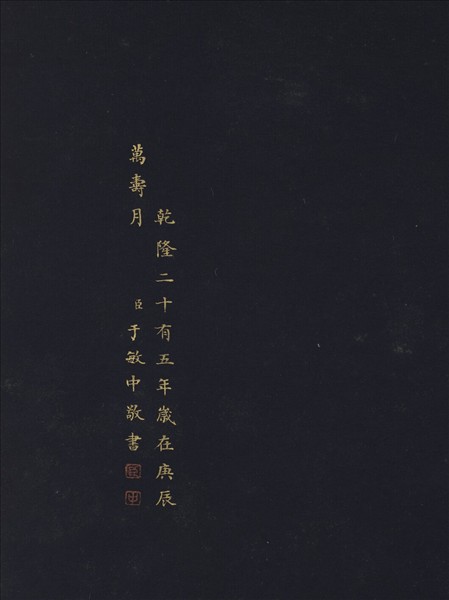 乾隆二十有五年歲在庚辰
萬壽月 臣于敏中敬書
臣
中